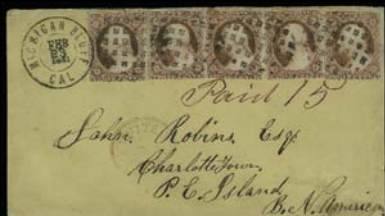 MICHIGAN BLUFF
FEB
23
1861
CAL
Paid 15
John Robins Esqr
Charlotte Town
P. E. Island
B. N. America